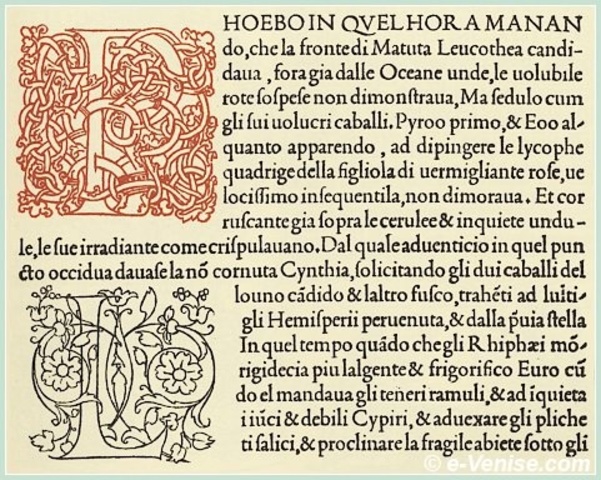 PHOEBO IN QVEL HORA MANAN
do,che la fronte di Matuta Leucothea candi-
daua ,fora gia dalle Oceane unde,le uolubile
rote ſoſpeſe non dimonſtraua,Ma ſedulo cum
gli ſui uolucri caballi. Pyroo primo,& Eoo al-
quanto apparendo , ad dipingere le lycophe
quadrige della figliola di uermigliante roſe,ue
lociſſimo inſequentila,non dimoraua. Et cor
ruſcante gia ſopra le cerulee & inquiete undu-
le,le ſue irradiante come criſpulauano.Dal quale aduenticio in quel pun
cto occidua dauaſe la nõ cornuta Cynthia,ſolicitando gli dui caballi del
L
louno cãdido & laltro fuſco,trahẽti ad luiti-
gli Hemiſperii peruenuta,& dalla p̃uia ſtella
In quel tempo quãdo che gli Rhiphæi mõ-
rigidecia piu lalgente & frigorifico Euro cũ
do el mandaua gli teneri ramuli,& ad ĩquieta
i iũci & debili Cypiri, & aduexare gli pliche
ti ſalici,& proclinare la fragile abiete ſotto gli
© e-Venise.com